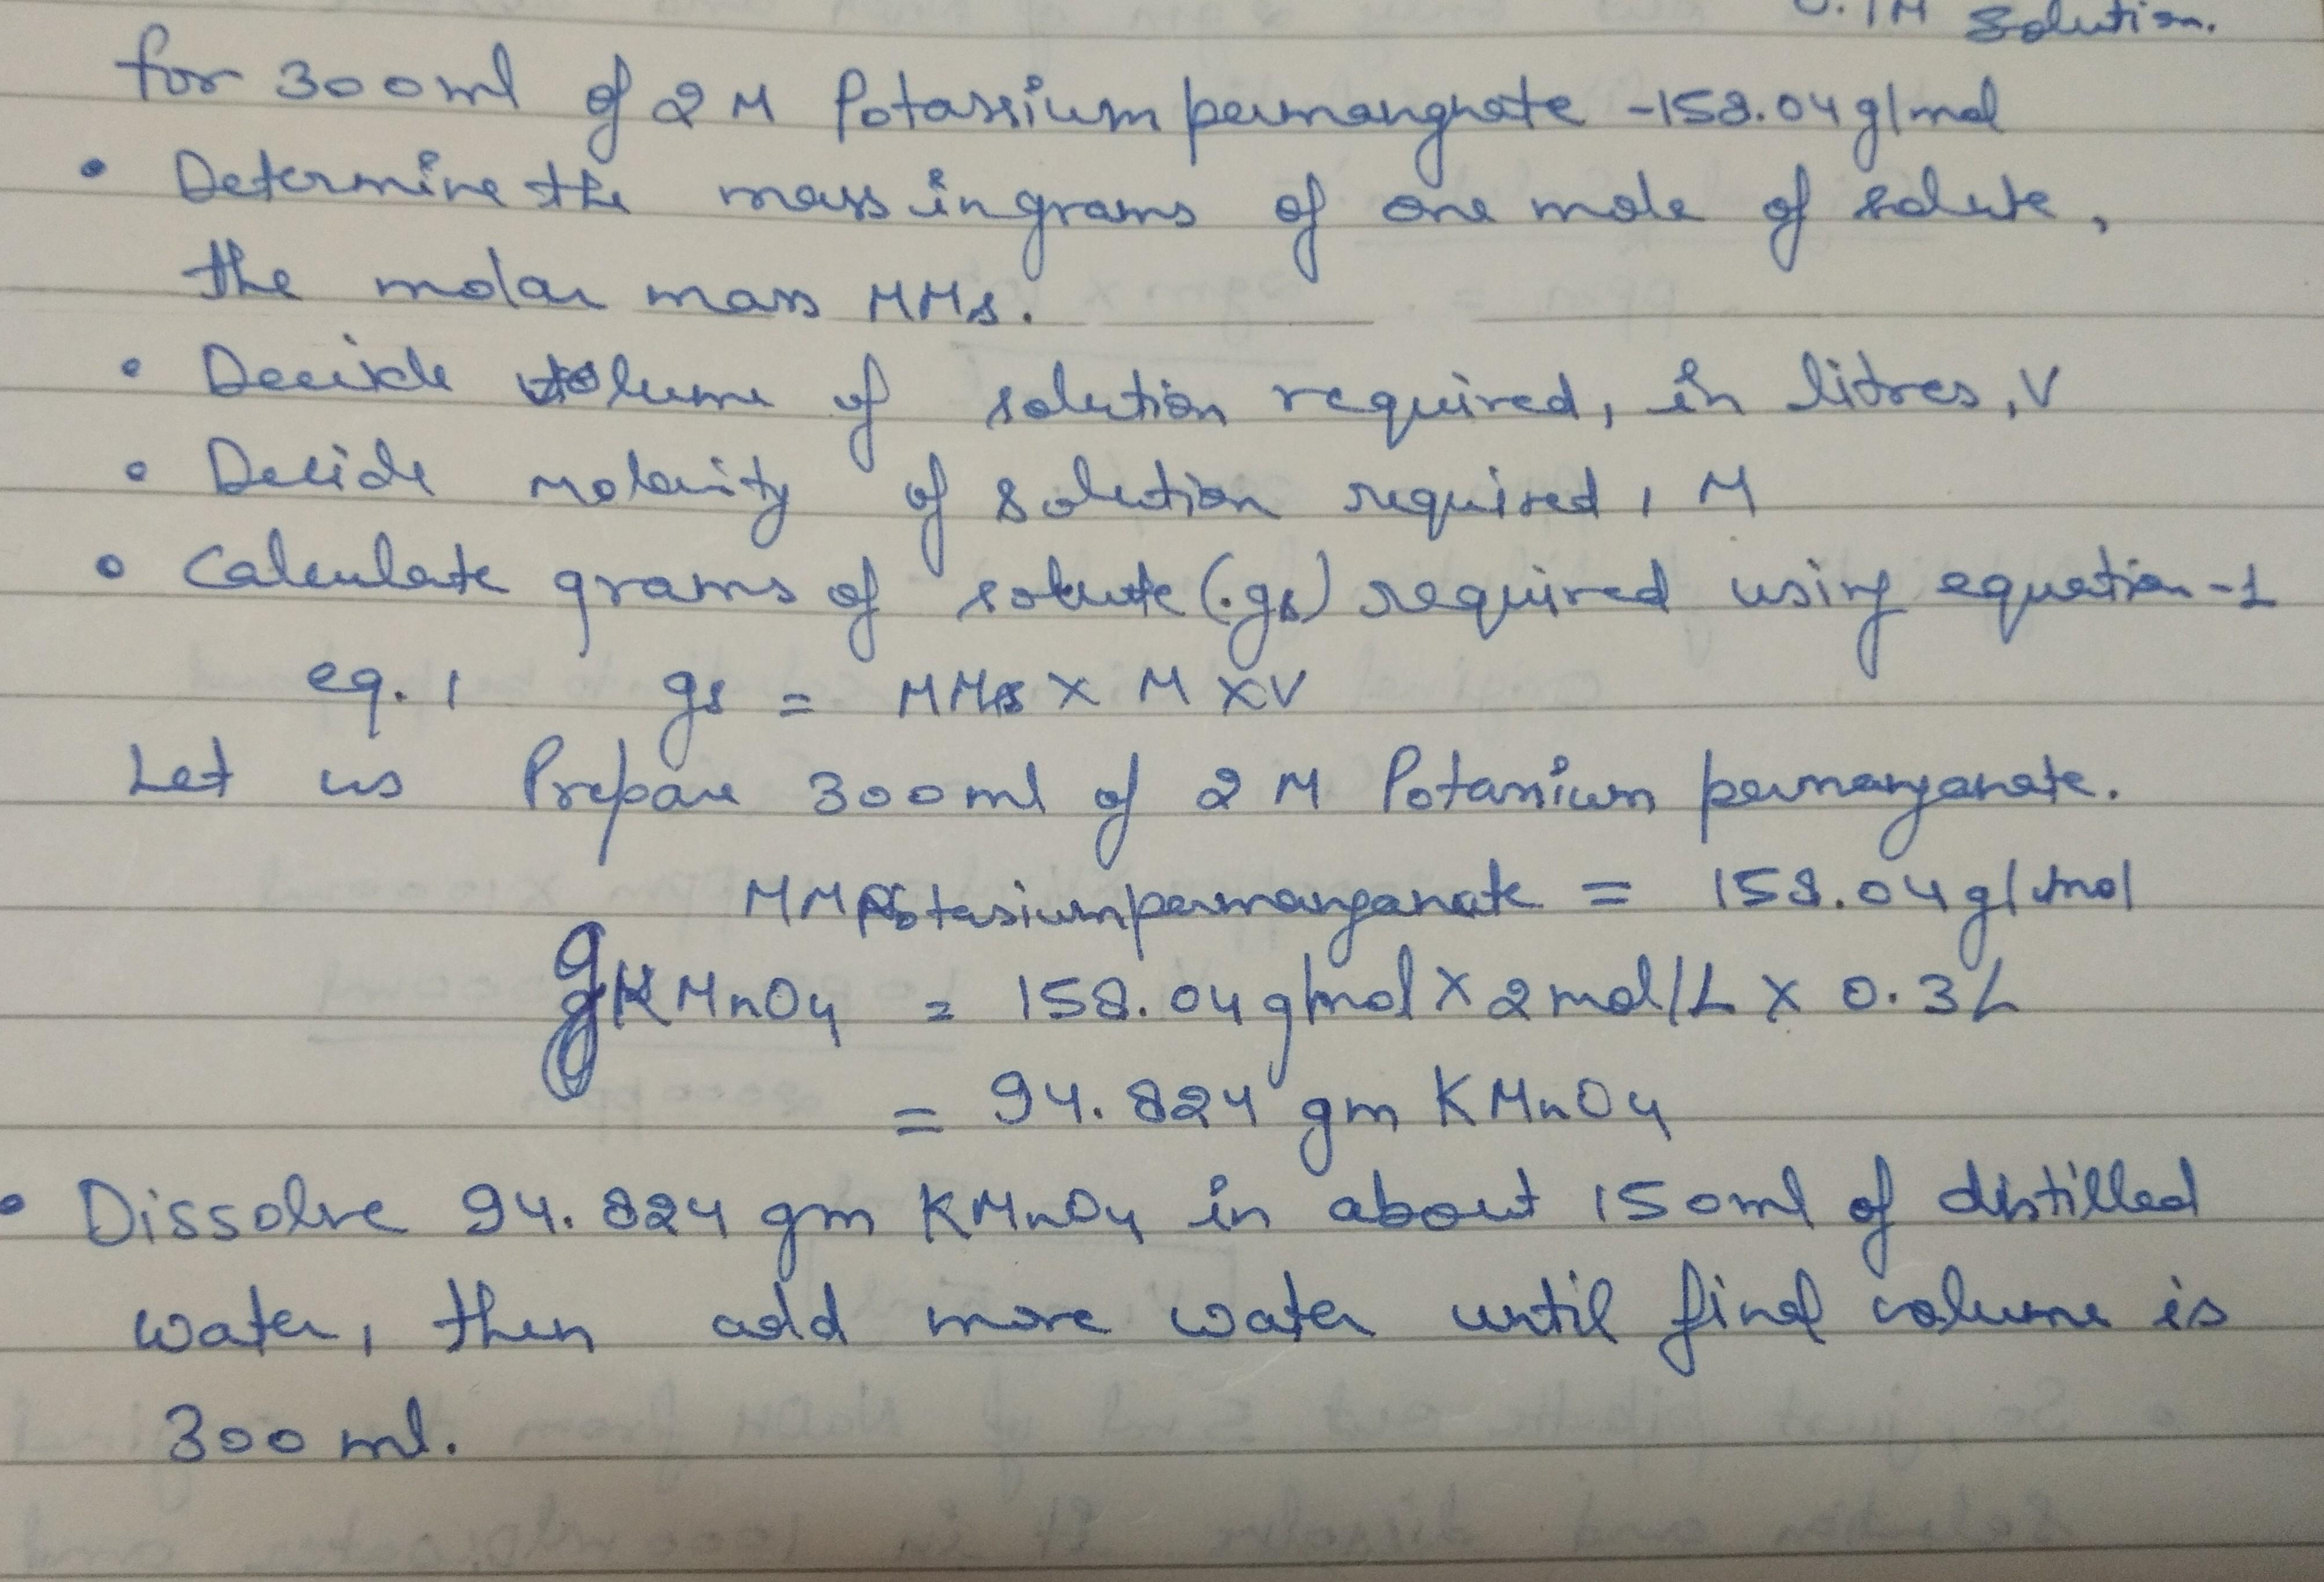 0.1M Solution.
for 300ml of 2M Potassium permangnate -158.04g/mol
• Determine the mass in grams of one mole of solute,
the molar mass MMs.
• Decide volume of solution required, in litres, V
• Decide molarity of solution required, M
• Calculate grams of solute (gs) required using equation-1
eq. 1 gs = MMs X M X V
Let us Prepare 300ml of 2M Potassium permanganate.
MM Potasium permanganate = 158.04g/mol
gKMnO4 = 158.04g/mol X 2mol/L X 0.3L
= 94.824 gm KMnO4
• Dissolve 94.824 gm KMnO4 in about 150ml of distilled
water, then add more water until final volume is
300 ml.